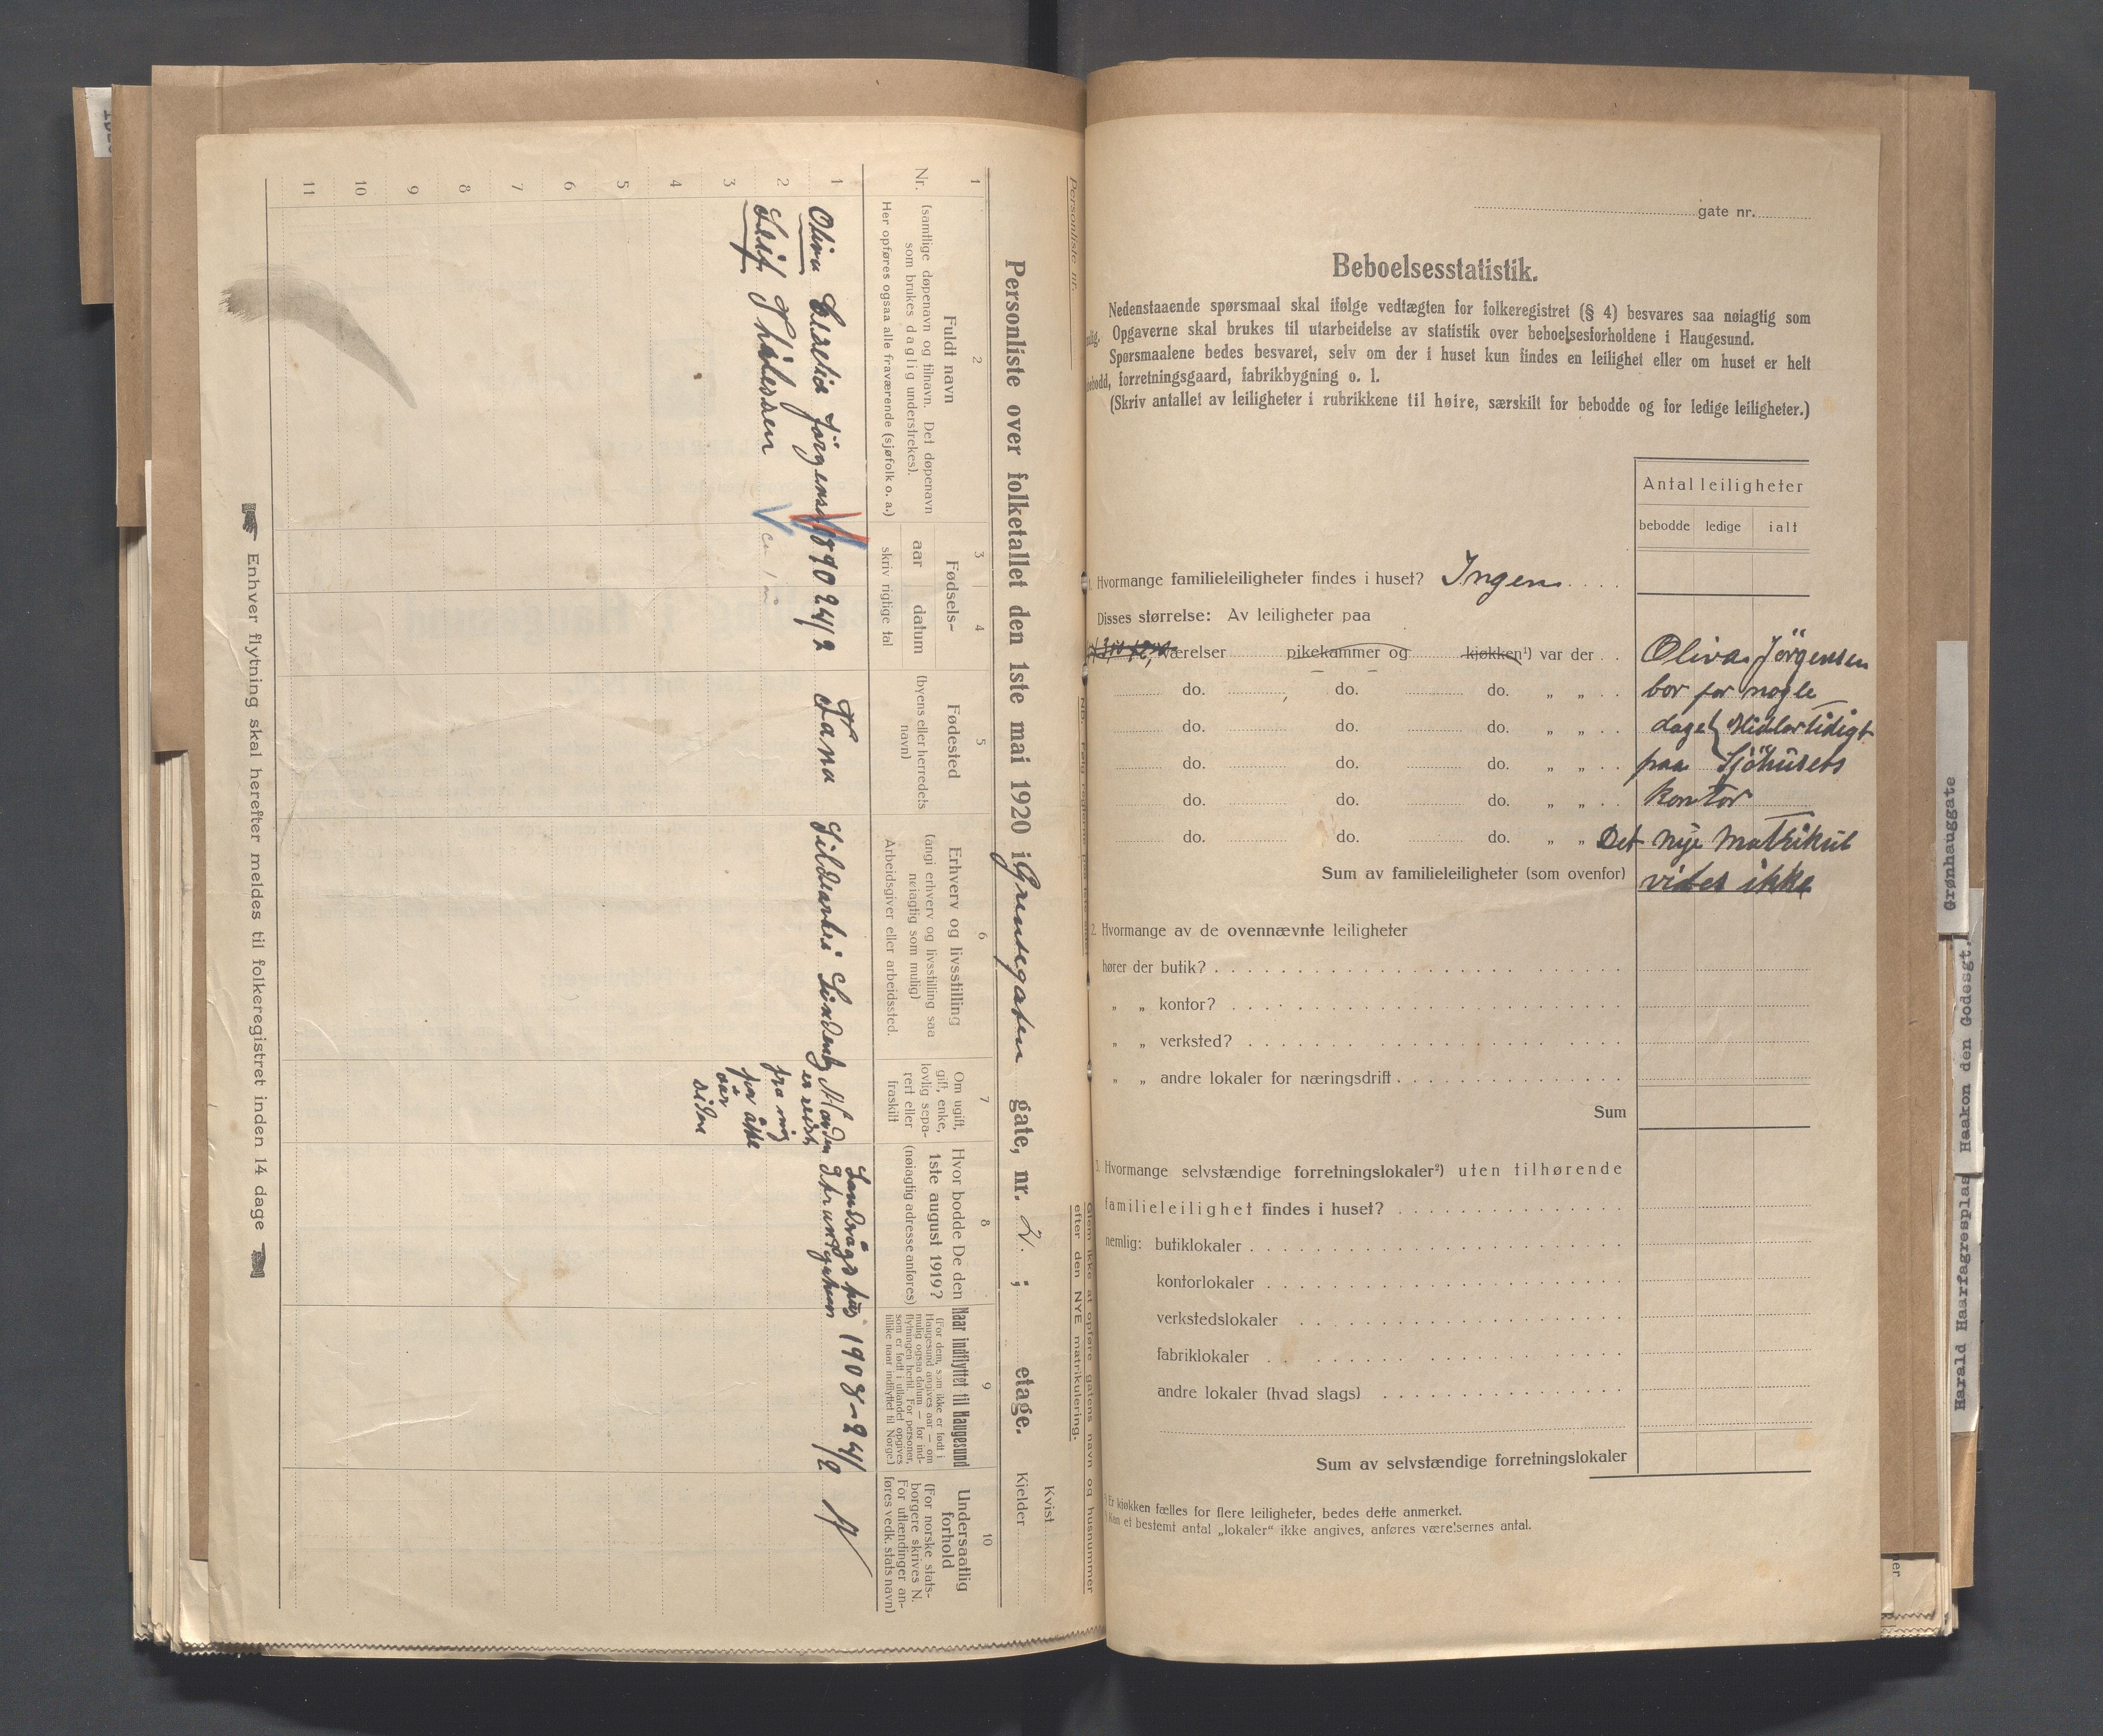 Personliste nr.
Personliste over folketallet den 1ste mai 1920 i Grensegaten gate, nr. 21. ; etage.
Kvist
Kjelder
1 2 3 4 5 6 7 8 9 10
Nr.
Fuldt navn
(samtlige døpenavn og tilnavn. Det døpenavn
som brukes daglig understrekes).
Her opføres ogsaa alle fraværende (sjøfolk o. a.)
Fødsels-
aar datum
skriv rigtige tal
Fødested
(byens eller herredets
navn)
Erhverv og livsstilling
(angi erhverv og livsstilling saa
nøiagtig som mulig)
Arbeidsgiver eller arbeidssted.
Om ugift,
gift, enke,
lovlig sepa-
rert eller
fraskilt
Hvor bodde De den
1ste august 1919?
(nøiagtig adresse anføres)
Naar indflyttet til Haugesund
(For dem, som ikke er født i
Haugesund angives aar — om
mulig ogsaa datum — for ind-
flytningen hertil. For personer,
som er født i utlandet opgives
tillike naar indflyttet til Norge.)
Undersaatlig
forhold
(For norske stats-
borgere skrives N.
For utlændinger an-
føres vedk. stats navn)
1 Oliva Jörgensen 1890 24/2 Tana 1908-24/2 N
er reist
fra mig
for åtte
aar
siden
2 Leif
3
4
5
6
7
8
9
10
11
Enhver flytning skal herefter meldes til folkeregistret inden 14 dage
Glem ikke at opføre gatens navn og husnummer
efter den NYE matrikulering.
gate nr.
Beboelsesstatistik.
Nedenstaaende spørsmaal skal ifølge vedtægten for folkeregistret (§ 4) besvares saa nøiagtig som
Opgaverne skal brukes til utarbeidelse av statistik over beboelsesforholdene i Haugesund.
Spørsmaalene bedes besvaret, selv om der i huset kun findes en leilighet eller om huset er helt
forretningsgaard, fabrikbygning o. l.
(Skriv antallet av leiligheter i rubrikkene til høire, særskilt for bebodde og for ledige leiligheter.)
Antal leiligheter
bebodde ledige ialt
Hvormange familieleiligheter findes i huset? Ingen
Disses størrelse: Av leiligheter paa
værelser pikekammer og kjøkken¹) var der Oliva Jörgensen
do. do. do. „ „ bor for nogle
do. do. do. „ „ dage Midlertidigt
do. do. do. „ „ paa Sjöhusets
do. do. do. „ „ kontor
do. do. do. „ „ Det nye Mathikul
Sum av familieleiligheter (som ovenfor) vides ikke
2. Hvormange av de ovennævnte leiligheter
hører der butik?
„ „ kontor?
„ „ verksted?
„ „ andre lokaler for næringsdrift
Sum
3. Hvormange selvstændige forretningslokaler²) uten tilhørende
familieleilighet findes i huset?
nemlig: butiklokaler
kontorlokaler
verkstedslokaler
fabriklokaler
andre lokaler (hvad slags)
Sum av selvstændige forretningslokaler
Er kjøkken fælles for flere leiligheter, bedes dette anmerket.
Kan et bestemt antal „lokaler“ ikke angives, anføres værelsernes antal.
Grønhauggate
Haakon den Godesgt.
Harald Haarfagresplas